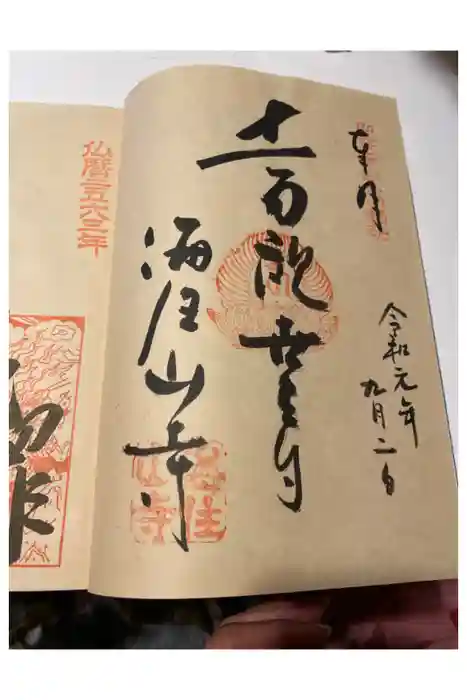 奉拝
令和元年
九月二日
十一面観世音
海住山寺
海住山寺
仏暦二五六三年